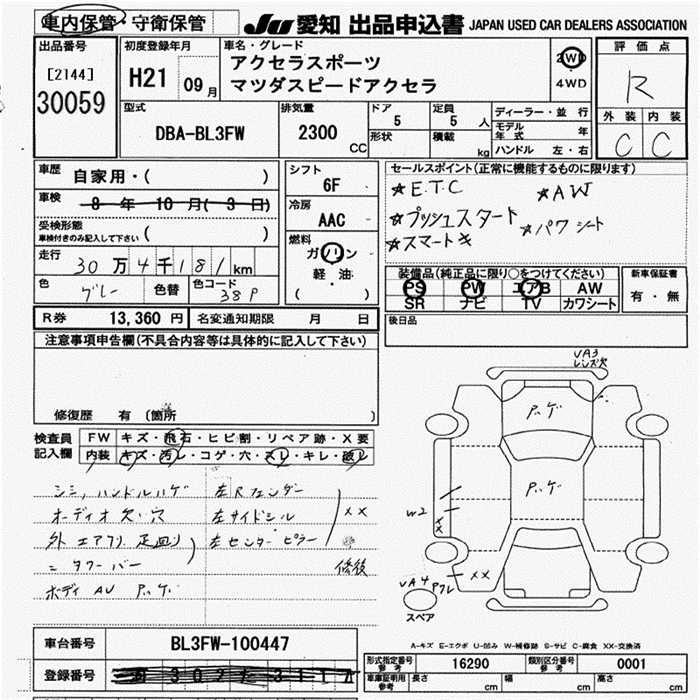 車内保管・守衛保管 JU 愛知 出品申込書 JAPAN USED CAR DEALERS ASSOCIATION
出品番号 初度登録年月 車名・グレード 評価点
[2144] H21 09月 アクセラスポーツ 2WD R
30059 マツダスピードアクセラ 4WD
型式 排気量 ドア 定員 ディーラー・並行 外装 内装
DBA-BL3FW 2300 CC 5 5 人 モデル年式 年 C C
形状 積載 kg ハンドル 左・右
車歴 自家用・( ) シフト セールスポイント(正常に機能するものに限ります)
6F ★E.T.C ★AW
車検 8年10月(3日) 冷房 ★プッシュスタート ★パワーシート
受検形態 ( ) AAC ★スマートキー
車検付きのみ記入して下さい 燃料
走行 30万4千181km ガソリン 装備品(純正品に限り○をつけてください) 新車保証書
色 グレー 色替 色コード 38P 軽・油 PS PW エアB AW 有・無
( ) SR ナビ TV カワシート
R券 13,360円 名変通知期限 月 日 後日品
注意事項申告欄(不具合内容等は具体的に記入して下さい)
VA3
レンズ欠
修復歴 有 (箇所 )
検査員 FW キズ・飛石・ヒビ割・リペア跡・X要
記入欄 内装 キズ・汚レ・コゲ・穴・スレ・キレ・破レ
シミ、ハンドルハゲ 左Rフェンダー
オーディオ欠・穴 左サイドシル XX
外エアフロ 足廻り 左センターピラー
タワーバー 修後
ボディ AU
W2
XX
VA4 XX
スペア
A-キズ E-エクボ U-凹み W-補修跡 S-サビ C-腐食 XX-交換済
車台番号 BL3FW-100447
形式指定番号 参考 16290 類別区分番号 参考 0001
登録番号 車庫証明用 参考 長さ cm 幅 cm 高さ cm